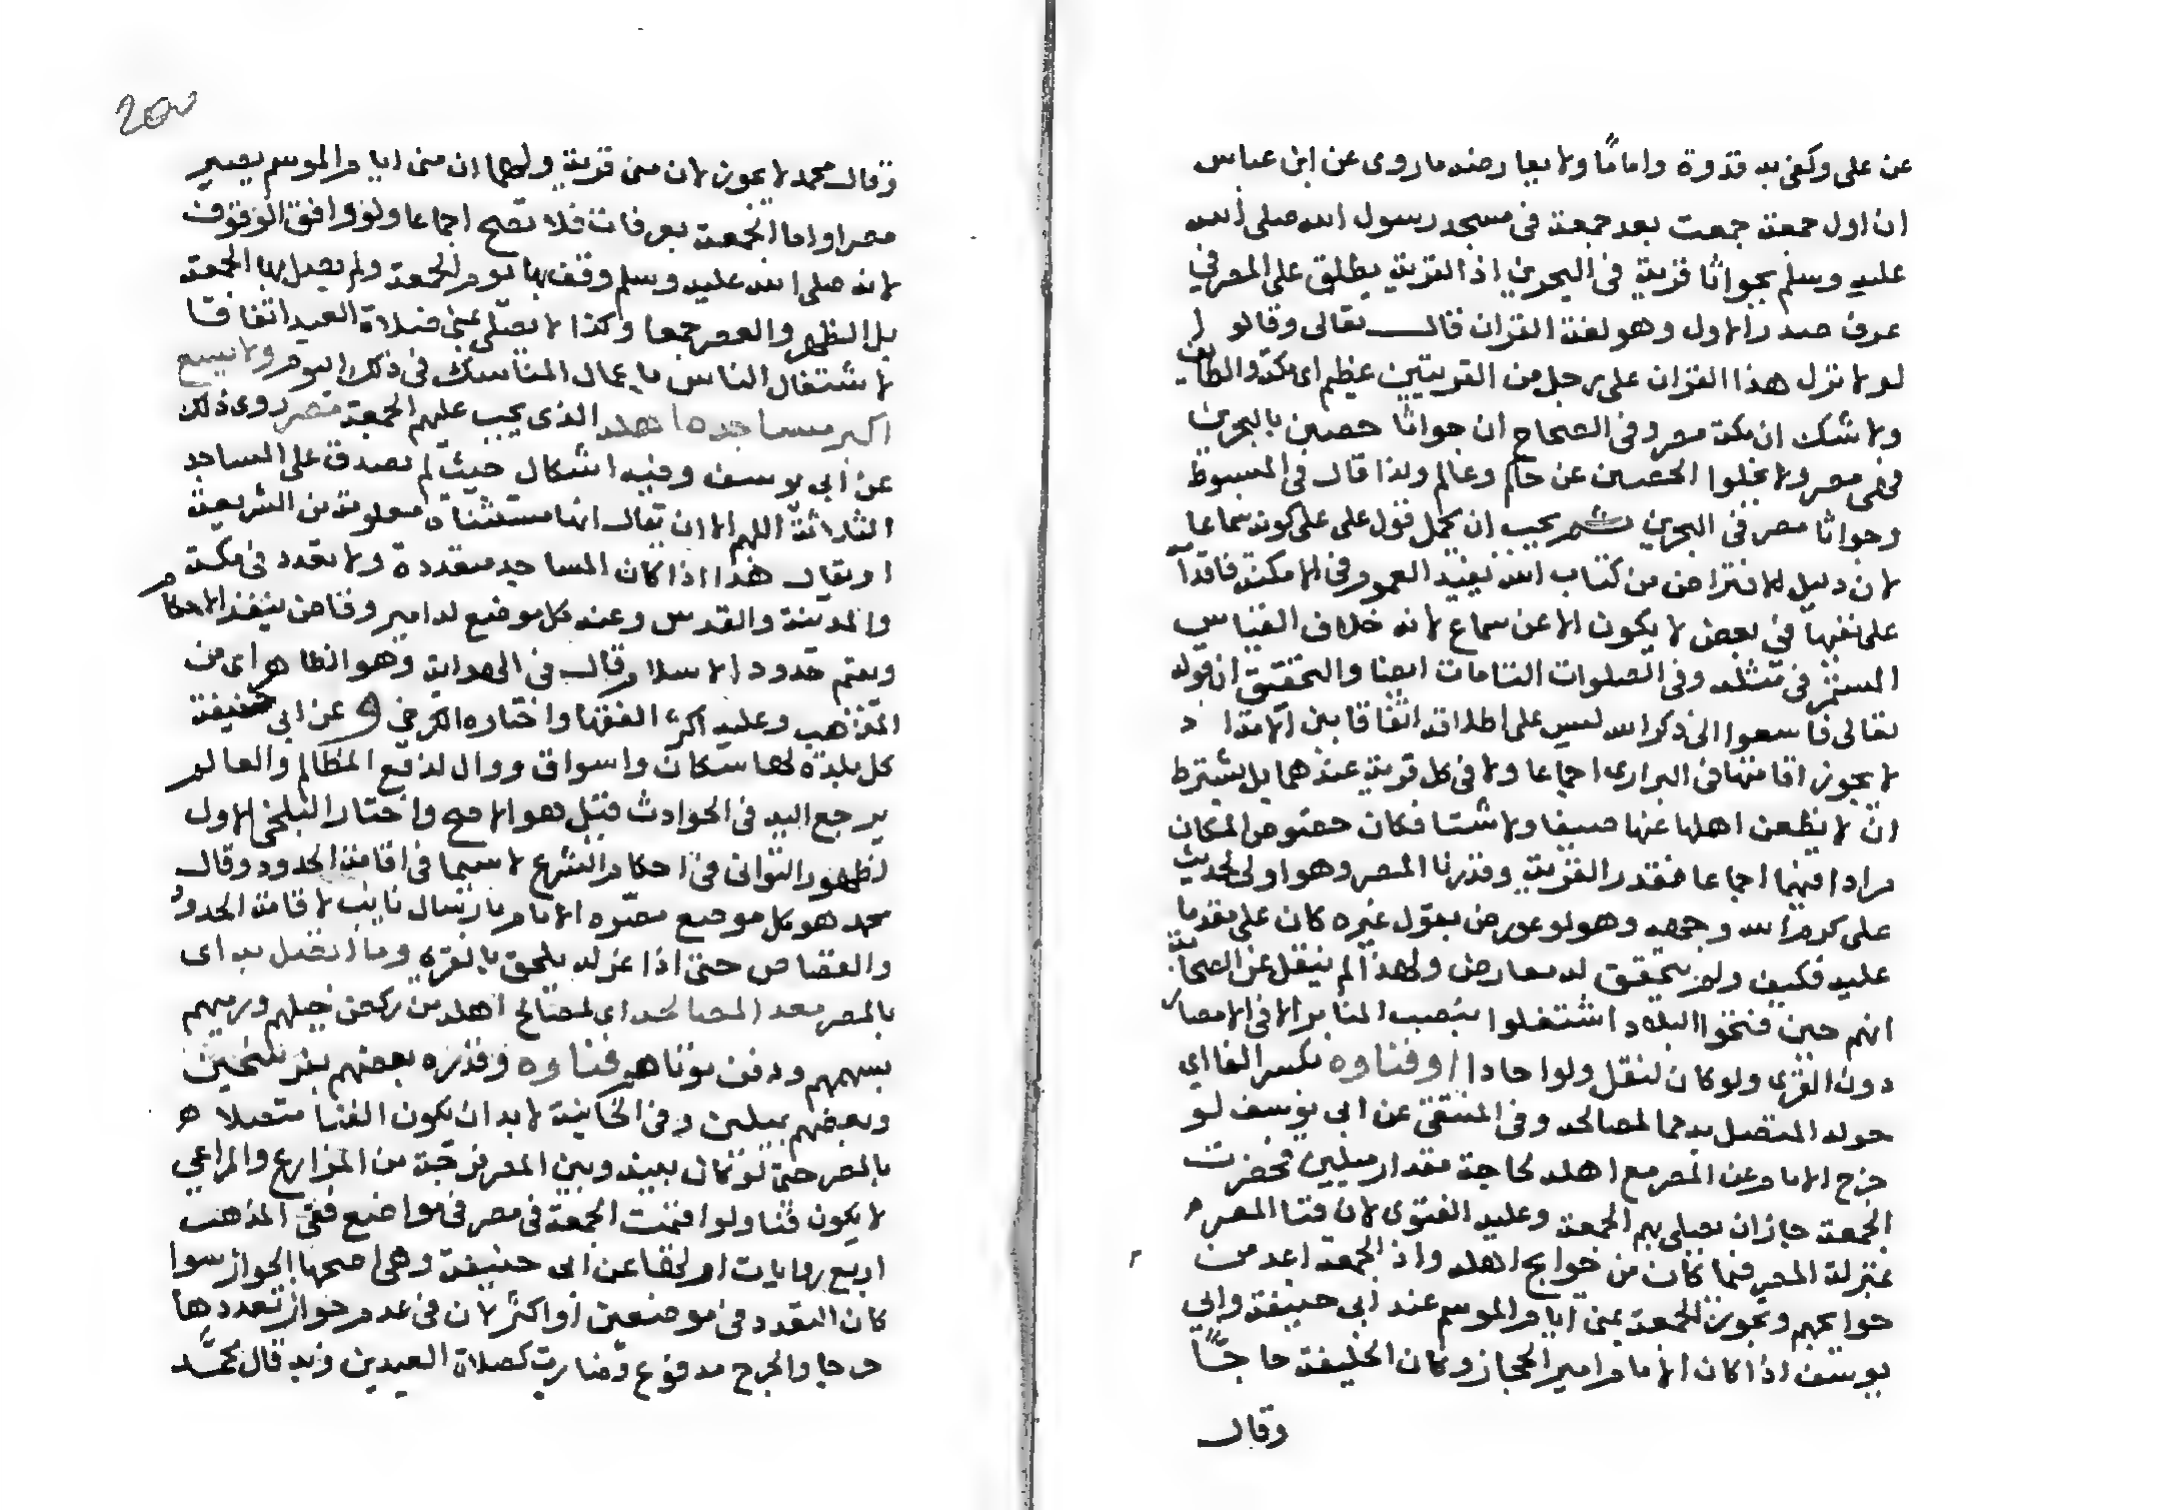 عن على وكفى به قدوة واماما ولا يعارضه ما روى عن ابن عباس
ان اول جمعة جمعت بعد جمعة فى مسجد رسول الله صلى الله
عليه وسلم بجواثا قرية فى البحرين اذ القرية يطلق على المصر في
عرف صدر الاول وهو لغة القران قال تعالى وقالو
لو لا نزل هذا القران على رجل من القريتين عظيم اى مكة والطايف
ولا شك ان مكة مصر وفى الصحاح ان جواثا حصين بالبحرين
فهى مصر ولا يخلوا الحصين عن حاكم وعالم ولذا قال فى المبسوط
وجواثا مصر فى البحرين ثم يجب ان يحمل قول على على كونه سماعا
لان دليل الافتراض من كتاب الله يفيد العموم فى الامكنة فاقدامه
على نفيها فى بعض لا يكون الا عن سماع لانه خلاف القياس
المستمر فى مثله وفى الصلوات التامات ايضا والتحقيق ان قوله
تعالى فاسعوا الى ذكر الله ليس على اطلاقه اتفاقا بين الامة اذ
لا يجوز اقامتها فى البرارى اجماعا ولا فى كل قرية عندهما بل يشترط
ان لا يظعن اهلها عنها صيفا ولا شتا فكان خصوص المكان
مرادا فيهما اجماعا فقدر القرية وقدرنا المصر وهو اولى لحديث
على كرم الله وجهه وهو لو عورض بقول غيره كان على مقدما
عليه فكيف ولم يتحقق له معارض ولهذا لم ينقل عن الصحابة
انهم حين فتحوا البلاد اشتغلوا بنصب المنابر الا فى الامصار
دون القرى ولو كان لنقل ولو احادا او فناوه بكسر الفا اى
حوله المتصل به مما لمصالحه وفى المنتقى عن ابى يوسف لو
خرج الامام عن المصر مع اهله لحاجة مقدار ميلين فحضرت
الجمعة جاز ان يصلى بهم الجمعة وعليه الفتوى لان فنا المصر
بمنزلة المصر فيما كان من حوايج اهله واذ الجمعة اعد من
حوايجهم وتجوز الجمعة بمنى ايام الموسم عند ابى حنيفة وابي
يوسف اذا كان الامام امير الحجاز وكان الخليفة حاجا
وقال
وقال محمد لا يجوز لان منى قرية ولهما ان منى ايام الموسم يصير
مصرا واما الجمعة بعرفات فلا تصح اجماعا ولو وافق الوقوف
لانه صلى الله عليه وسلم وقف بها يوم الجمعة ولم يصل بها الجمعة
بل الظهر والعصر جمعا وكذا لا يصلى بمنى صلاة العيد اتفاقا
لاشتغال الناس باعمال المناسك فى ذلك اليوم ولا يسع
اكبر مساجده اهله الذى يجب عليهم الجمعة مصر روى ذلك
عن ابى يوسف وفيه اشكال حيث لم يصدق على المساجد
الثلاثة اللهم الا ان يقال انها مستثناة معلومة من الشريعة
او يقال هذا اذا كان المساجد متعددة ولا تعدد فى مكة
والمدينة والقدس وعنه كل موضع له امير وقاض ينفذ الاحكام
ويقيم حدود الاسلام قال فى الهداية وهو الظاهر اى من
المذهب وعليه اكثر الفقها واختاره الكرخى وعن ابى حنيفة
كل بلدة لها سكان واسواق ووال لدفع المظالم والعالم
يرجع اليه فى الحوادث قيل هو الاصح واختار البلخى الاول
لظهور التوانى فى احكام الشرع لا سيما فى اقامة الحدود وقال
محمد هو كل موضع مصره الامام بارسال نايب لاقامة الحدود
والقصاص حتى اذا عزله يلحق بالقرى وما اتصل به اى
بالمصر معد المصالحه اى لمصالح اهله من ركض خيلهم ورميهم
بسهمهم ودفن موتاهم فناوه وقدره بعضهم بفرسخين
وبعضهم بميلين وفى الخانية لا بد ان يكون الفنا متصلا
بالمصر حتى لو كان بينه وبين المصر فرجة من المزارع والمراعي
لا يكون فنا ولو اقيمت الجمعة فى مصر فى مواضع ففى المذهب
اربع روايات عن ابى حنيفة وهى اصحها الجواز سوا
كان التعدد فى موضعين او اكثر لان فى عدم جواز تعددها
حرجا والحرج مدفوع وصارت كصلاة العيدين وبه قال محمد